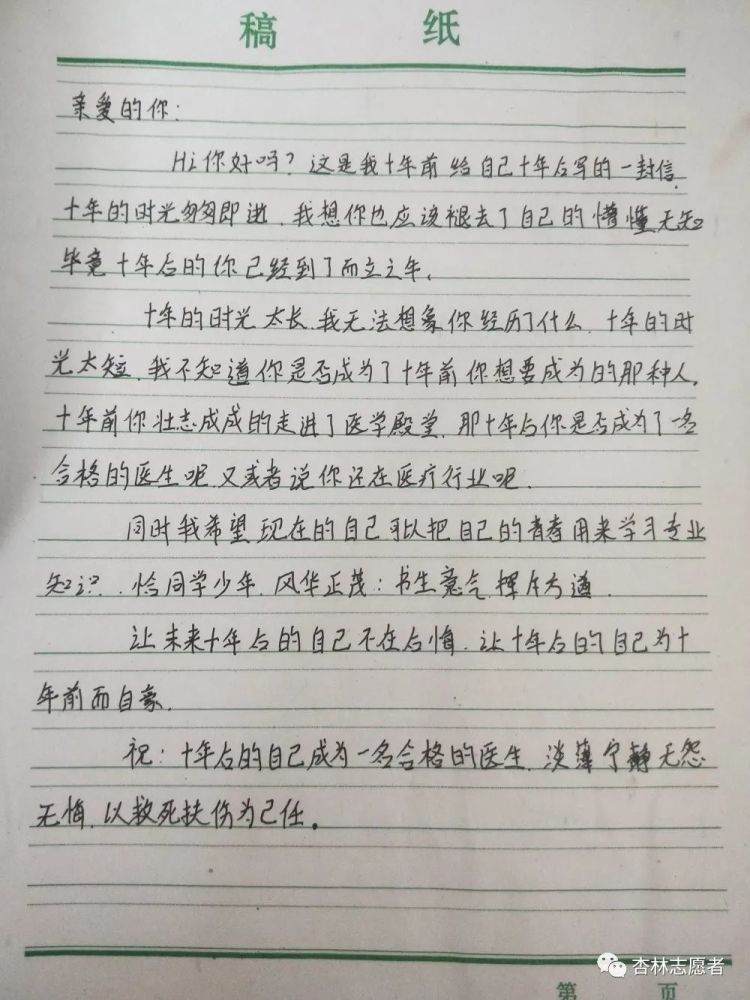 稿 纸
亲爱的你:
Hi你好吗?这是我十年前给自己十年后写的一封信,
十年的时光匆匆即逝,我想你也应该褪去了自己的懵懂无知
毕竟十年后的你已经到了而立之年,
十年的时光太长,我无法想象你经历了什么,十年的时
光太短,我不知道你是否成为了十年前你想要成为的那种人,
十年前你壮志成成的走进了医学殿堂,那十年后你是否成为了一名
合格的医生呢,又或者说你还在医疗行业呢,
同时我希望现在的自己可以把自己的青春用来学习专业
知识,恰同学少年,风华正茂:书生意气,挥斥方遒,
让未来十年后的自己不在后悔,让十年后的自己为十
年前而自豪,
祝:十年后的自己成为一名合格的医生,淡薄宁静无怨
无悔,以救死扶伤为己任。
杏林志愿者
第 页